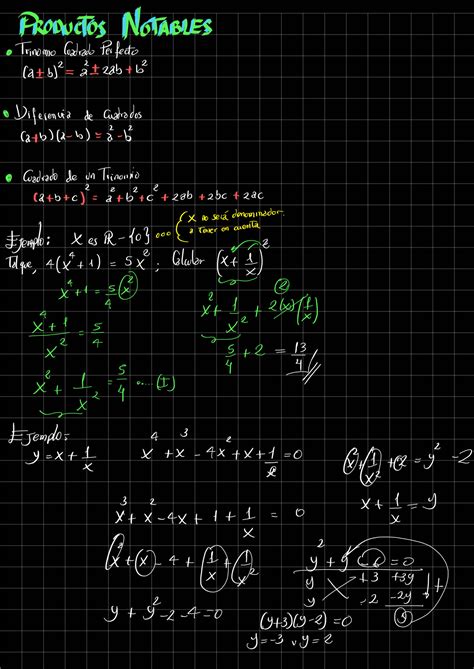 PRODUCTOS NOTABLES
• Trinomio Cuadrado Perfecto
(a±b)² = a² ± 2ab + b²
• Diferencia de Cuadrados
(a+b)(a-b) = a² - b²
• Cuadrado de un Trinomio
(a+b+c)² = a² + b² + c² + 2ab + 2bc + 2ac
Ejemplo: X es R - {0} ooo { X no será denominador.
a Tener en cuenta
Tal que, 4(x⁴+1) = 5x²; Calcular (x + 1/x)²
x⁴+1 = 5/4 x²
(x⁴+1)/x² = 5/4
x² + 1/x² = 5/4 ....(I)
x² + 1/x² + 2(x)(1/x) 2
5/4 + 2 = 13/4
Ejemplo:
y = x + 1/x
x⁴ + x³ - 4x² + x + 1 = 0
x³ + x² - 4x + 1 + 1/x = 0
x² + x - 4 + 1/x + 1/x²
y + y² - 2 - 4 = 0
x² + 1/x² + 2 = y² - 2
x + 1/x = y
y² + y - 6 = 0
y +3 +3y
y -2 -2y
y
(y+3)(y-2) = 0
y = -3 v y = 2